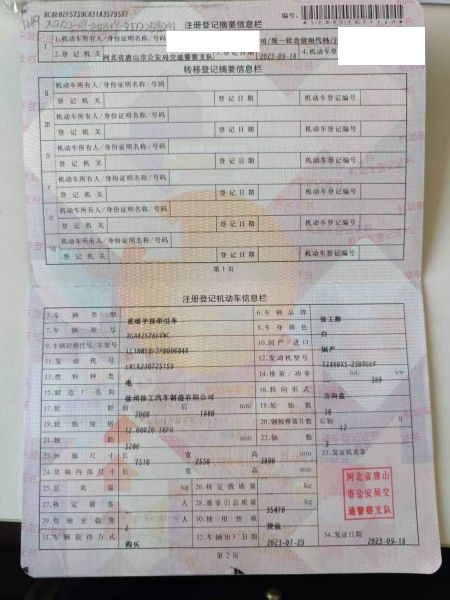 注册登记摘要信息栏
编号:
1.机动车所有人/身份证明名称/号码
/统一社会信用代码/
2.登记机关 河北省唐山市公安局交通警察支队 2023-09-18 4.机动车登记编号
转移登记摘要信息栏
II 机动车所有人/身份证明名称/号码
登记机关 登记日期 机动车登记编号
III 机动车所有人/身份证明名称/号码
登记机关 登记日期 机动车登记编号
IV 机动车所有人/身份证明名称/号码
登记机关 登记日期 机动车登记编号
V 机动车所有人/身份证明名称/号码
登记机关 登记日期 机动车登记编号
VI 机动车所有人/身份证明名称/号码
登记机关 登记日期 机动车登记编号
VII 机动车所有人/身份证明名称/号码
登记机关 登记日期 机动车登记编号
第1页
注册登记机动车信息栏
5.车辆类型 重型半挂牵引车 6.车辆品牌 徐工牌
7.车辆型号 8.车身颜色 白
9.车辆识别代号/车架号 10.国产/进口 国产
11.发动机号 12.发动机型号
13.燃料种类 电 14.排量/功率 ml/ 360 kw
15.制造厂名称 徐州徐工汽车制造有限公司 16.转向形式 方向盘
17.轮距 前 2060 后 1860 mm 18.轮胎数 10
19.轮胎规格 12.00R20 18PR 20.钢板弹簧片数 后轴 12 片
21.轴距 5200 mm 22.轴数 3
23.外廓尺寸 长 7510 宽 2550 高 3800 mm 33.发证机关章
24.货厢内部尺寸 长 宽 高 mm
25.总质量 kg 26.核定载质量 kg
27.核定载客 人 28.准牵引总质量 35420 kg
29.驾驶室载客 2 人 30.使用性质 货运
31.车辆获得方式 购买 32.车辆出厂日期 2023-07-29 34.发证日期 2023-09-18
河北省唐山
市公安局交
通警察支队
第2页